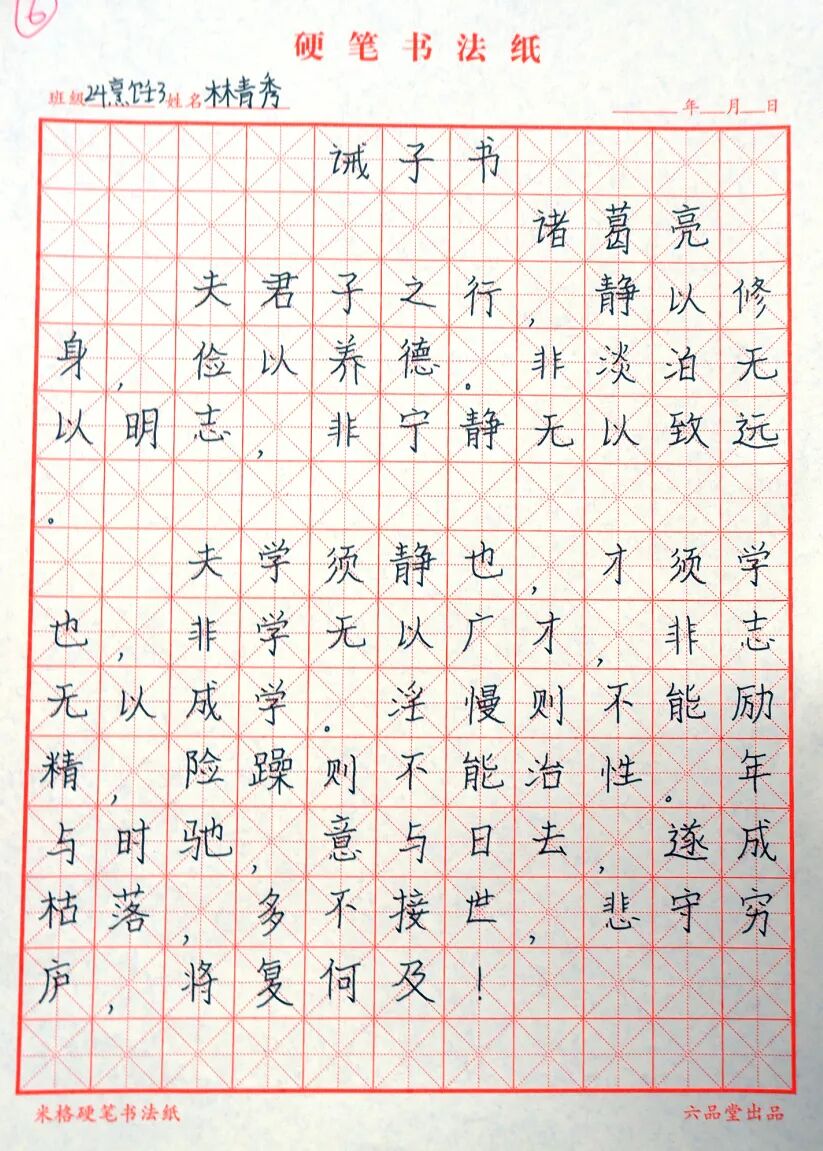 6
硬笔书法纸
班级24烹饪3姓名林青秀 年 月 日
诫子书
诸葛亮
夫君子之行，静以修
身，俭以养德。非淡泊无
以明志，非宁静无以致远
。
夫学须静也，才须学
也，非学无以广才，非志
无以成学。淫慢则不能励
精，险躁则不能治性。年
与时驰，意与日去，遂成
枯落，多不接世，悲守穷
庐，将复何及！
米格硬笔书法纸 六品堂出品